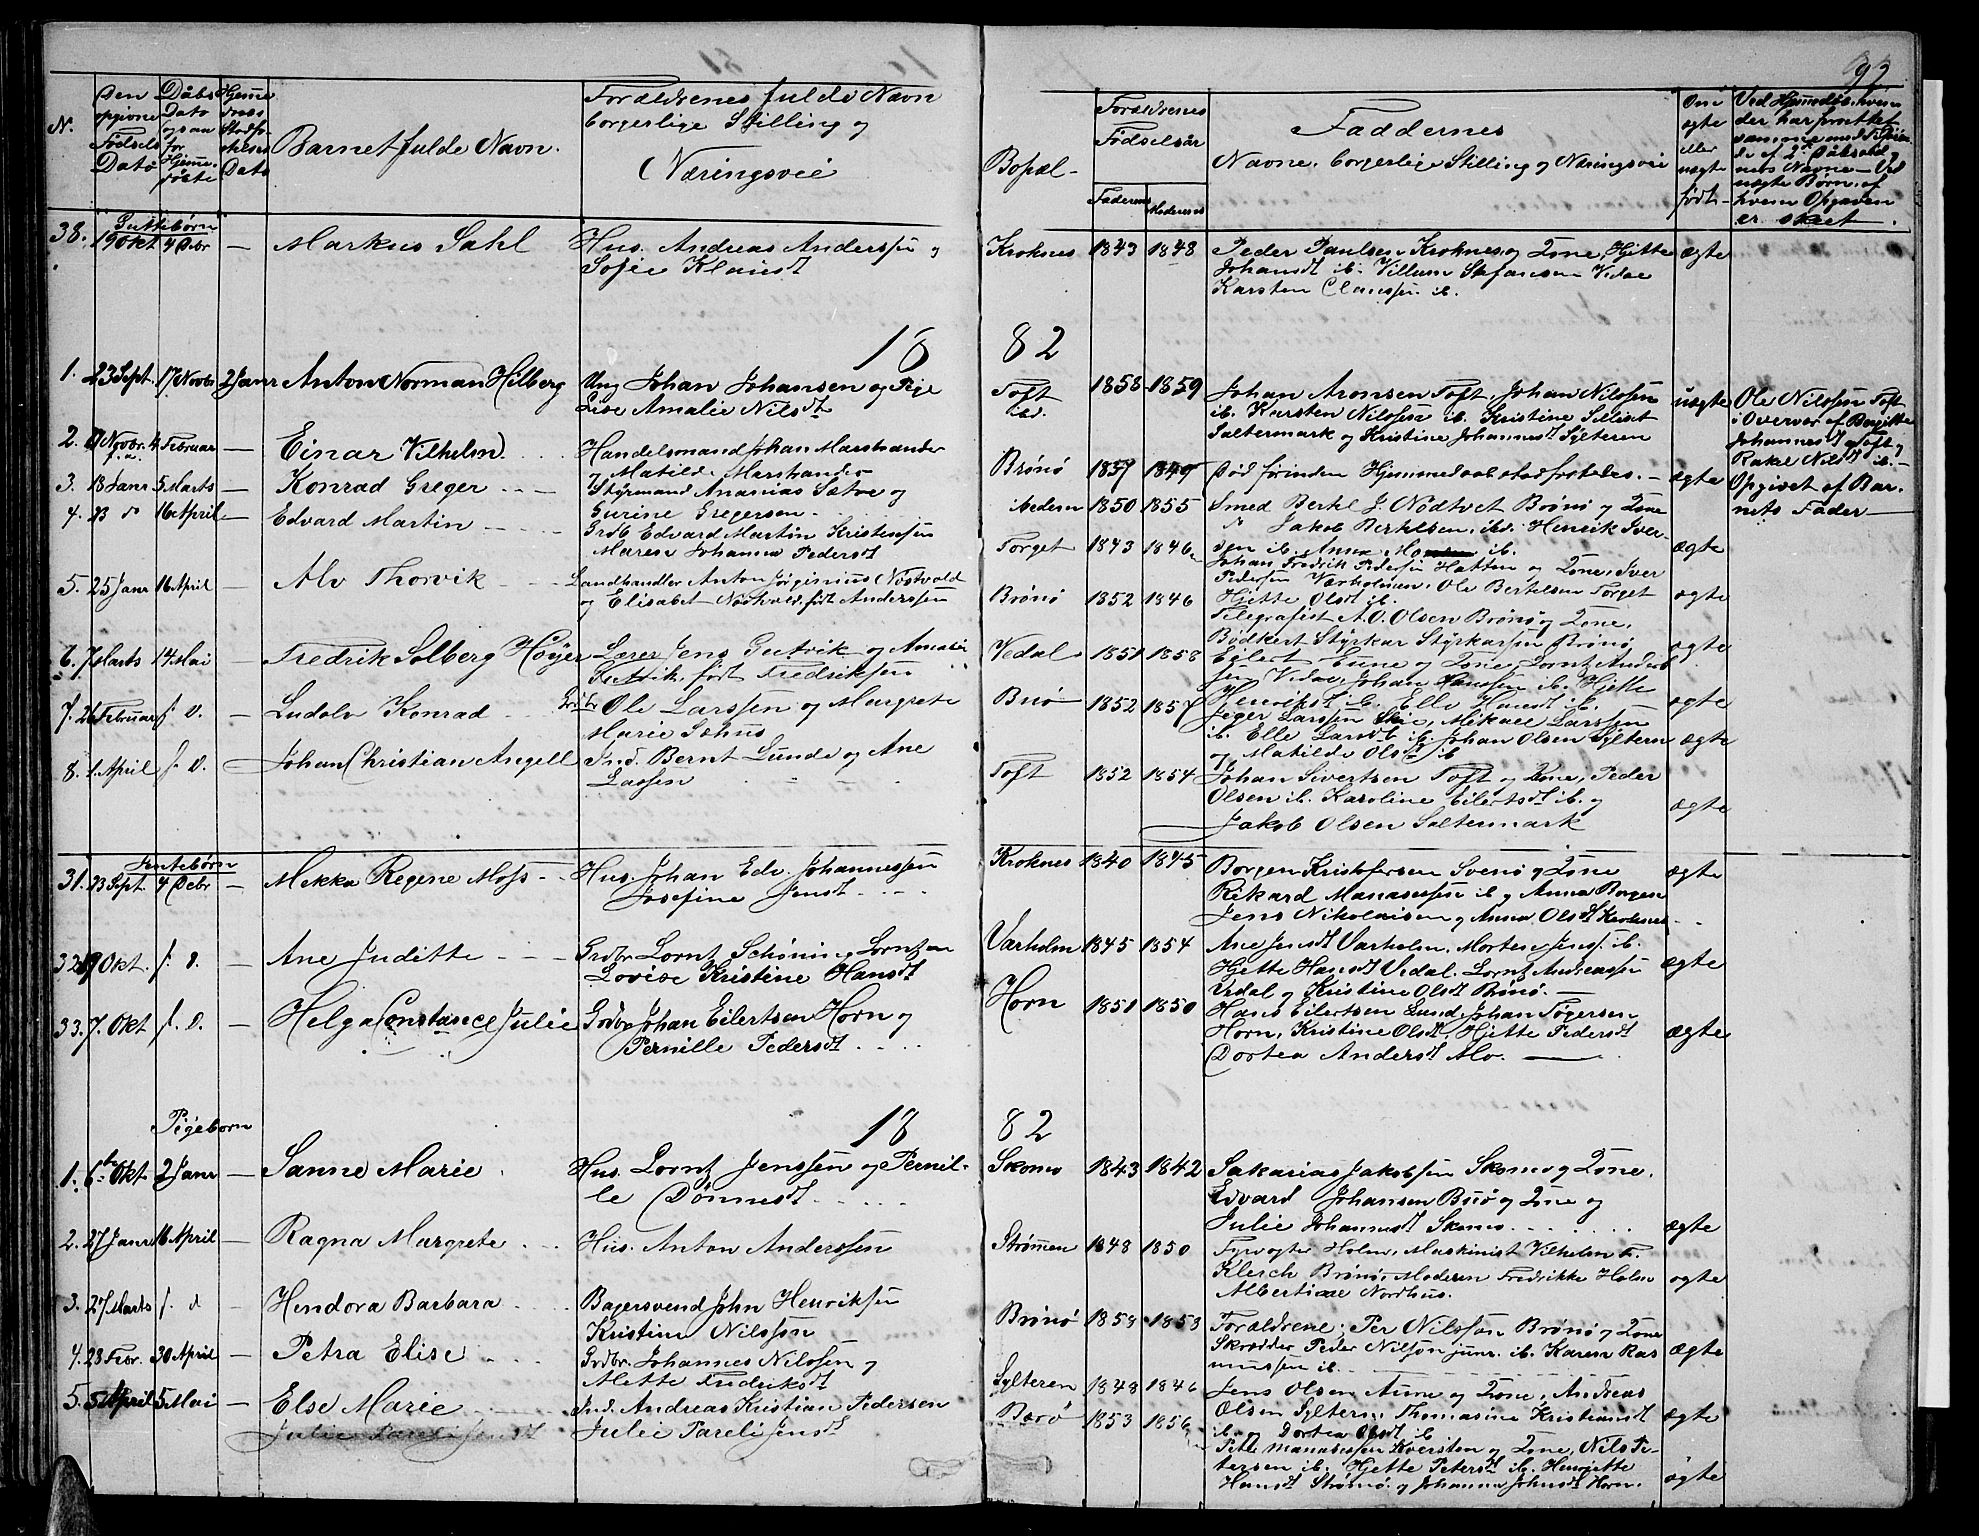 18 81
92
N. Den opgivne Fødsels Dato Dåbs Dato Hjemme Barnet fulde Navn. Forældrenes fulde Navn borgerlige Stilling og Næringsvei
Bopæl Forældrenes Fødselsår Faderens Moderens Faddernes Navne, borgerlige Stilling og Næringsvei Om ægte eller uægte født
Guttebørn
38. 19 Okt 4 Debr — Markus Sahl Hus. Andreas Anderssen og
Sofie Klausdt
Kroknes 1843 1848 Peder Paulsen Kroknes og Kone, Hjette ægte
Johansdt ib. Villum Stefansen Vedae
Karsten Claussen ib.
18 82
1. 23 Sept. 17 Novbr 2 Janr Anton Norman Hilberg Ung Johan Johansen og Pige
Lise Amalie Nilsdt
Toft ib. 1858 1859 Johan Aronsen Toft, Johan Nilssen uægte Ole Nilssen Toft
ib. Karsten Nilssen ib. Kristine i Overvær af Bergitte
Saltermark og Kristine Johannesdt Sylteren Johannesdt Toft og
Rakel Nilsdt ib. —
Opgivet af Bar-
nets Fader —
2. Novbr. 4 Februar — Einar Vilhelm Handelsmand Johan Marshander
og Matilde Marshander
Brønø 1839 1849 Død førinden Hjemmedaab stadfæstedes. — ægte
3. 18 Janr 5 Marts — Konrad Greger Styrmand Ananias Sætre og
Gurine Gregersen
1850 1855 Smed Berkl J. Nødtvet Brønø og Kone
Jakob Berkelsen, ibd. Henrik Iver-
sen ib. Anna ib. ægte
4. 23 d 16 April — Edvard Martin Grdb Edvard Martin Kristensen
Maren Johanna Pedersdt
Torget 1843 1846 Johan Fredrik Pedersen Hatten og Kone, Iver
Pedersen Varholmen, Ole Bertelsen Torget
Hjette Olsdt ib. ægte
5. 25 Janr 16 April — Alv Thorvik Landhandler Anton Jørginius Nøstvold
og Elisabet Nøstvold, født Anderssen
Brønø 1852 1846 Telegrafist A. O. Olsen Brønø og Kone,
Bødkert Styrkar Styrkarsen Brønø ægte
6. 7 Marts 14 Mai — Fredrik Solberg Høyer Lærer Jens Gutvik og Amalie
Gutvik, født Fredriksen
Vedal 1851 1858 Eilert Eune og Kone, Lorntz Anders
sen Vedae, Johan Hanssen ib. Hjette
Henriksdt ib. Elle Hansdt ib. ægte
7. 26 Februar s. D. — Ludolv Konrad Grdbr Ole Larssen og Margrete
Marie Sæhus
1852 1857 Jeger Larssen Skie, Mikael Larssen
ib. Elle Larsdt ib. Johan Olsen Syltern
og Matilde Olsdt ib ægte
8. 1 April s. D. — Johan Christian Angell Ind. Bernt Lunde og Ane
Lassen
Toft 1852 1854 Johan Sivertsen Toft og Kone, Peder
Olsen ib. Karoline Eilertsdt ib. og
Jakob Olsen Saltermark ægte
Jentebørn
31. 23 Sept. 4 Debr — Mekka Regine Moss Hus. Johan Edv. Johannessen
Josefine Jensdt
Kroknes 1840 1845 Borgen Kristofersen Svenø og Kone ægte
Rikard Manassesen ib og Anna Borgen
Jens Nikolaisen og Anna Olsdt Kroknes
32. 19 Okt. s. D. — Ane Juditte Grdbr Lornt Schøning Lorntzen
Lovise Kristine Hansdt
Varholm 1845 1854 Ane Jensdt Varholm. Morten Jenss. ib.
Hjette Hansdt Vedal. Lorntz Andreassen
Vedal og Kristine Olsdt Brønø. — ægte
33. 7. Okt s. D. — Helga Constance Julie Grdbr Johan Eilertsen Horn og
Pernille Pedersdt
Horn 1851 1850 Hans Eilertsen Lund, Johan Tøgersen
Horn, Kristine Olsdt, Hjette Pedersdt
Dortea Andersdt Alv. — ægte
Pigeborn
18 82
1. 6te Okt. 2 Janr — Sanne Marie Hus. Lorntz Jenssen og Pernil-
le Dønnesdt
Skomo 1843 1842 Sakarias Jakobsen Skomo og Kone.
Edvard Johansen Buø og Kone og
Julie Johannesdt Skomo ægte
2. 27 Janr 16 April — Ragna Margrete Hus. Anton Anderssen
Strømen 1848 1850 Fyrvogter Holm, Maskinist Vilhelm F.
Klerch Brønø, Moderen Fredrikke Holm
Albertine Nordhus. ægte
3. 27 Marts s. d — Hendora Barbara Bagersvend John Henriksen
Kristine Nilsson
Brønø 1858 1858 Forældrene, Per Nilsson Brønø og Kone
Skrædder Peder Nilson junr. ib. Karen Ras
mussen ib. ægte
4. 28 Febr. 30 April — Petra Elise Grdbr. Johannes Nilssen og
Mette Fredriksdt
Sylteren 1848 1846 Jens Olsen Aune og Kone, Andreas
Olsen Syltern, Thomasine Kristiansdt
ib. og Dortea Olsdt ib ægte
5. 5 April 5 Mai — Else Marie Ind. Andreas Kristian Pedersen
Julie Pareli Jensdt Julie Pareli Jensdt
1853 1856 Peter Manassessen Kversten og Kone, Nils Pe-
tersen ib. Hjette Petersdt ib. Henriette
Hansdt Strømø og Johanna Johnsdt Horn. ægte